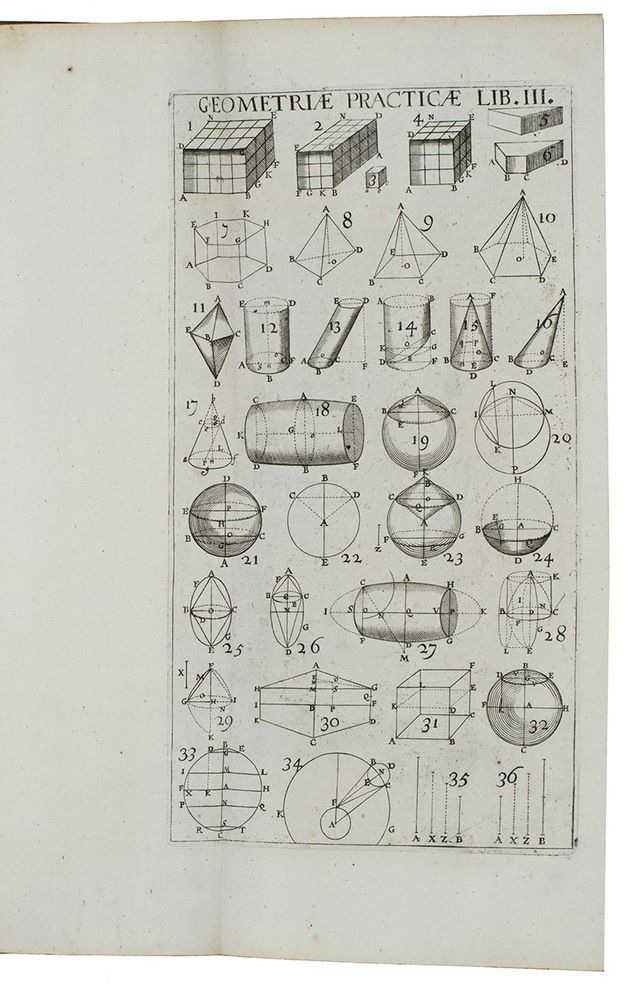 GEOMETRIÆ PRACTICÆ LIB. III.
1 N E D C F K G A B
2 N D C A F G K B
3
4 N E D C F K G A B
5
6 A D B C
7 E I K H F G A D B C
8 A B D C O
9 A E D B C O
10 A B E C D O
11 A E B C D
12 E m D A C F B
13 E D A B C F
14 A B K C G D E F
15 A F B C E D
16 A B C D E
17
18 C A E K G L D B F
19 A B C E F
20 L N I M K P
21 D E P F H B O C G A
22 B C D A E
23 K B C D Q A F G E Z
24 H E B G A C Q D
25 A F B O C D G E
26 A F B C E N G D
27 C A H I S O Q V P K F D G M
28 A K B D C I N F G L E
29 X F M G O H I N K
30 A E O H M S G Q I B P F K D C
31 F E L K D A B C
32 B D G E V F K A H C
33 B D E I M L F X K A H P N Q R S T C
34 B D N E C F A G
35 A X Z B
36 A X Z B